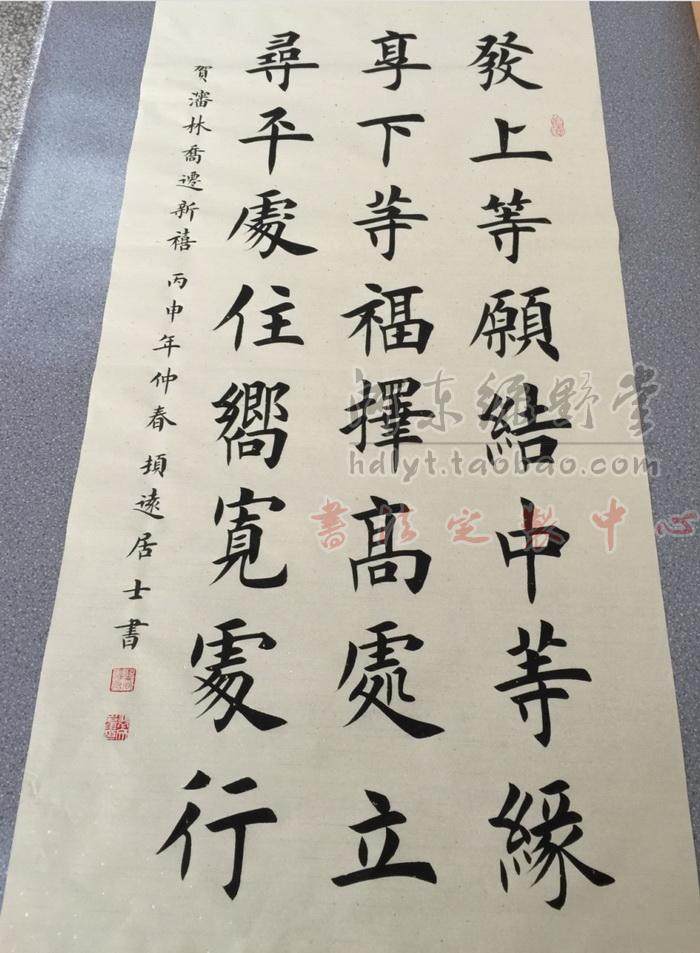 發上等願結中等緣
享下等福擇高處立
尋平處住嚮寬處行
賀瀋林喬遷新禧 丙申年仲春 項遠居士書
東籬野堂
hdlyt.taobao.com
書法定製中心